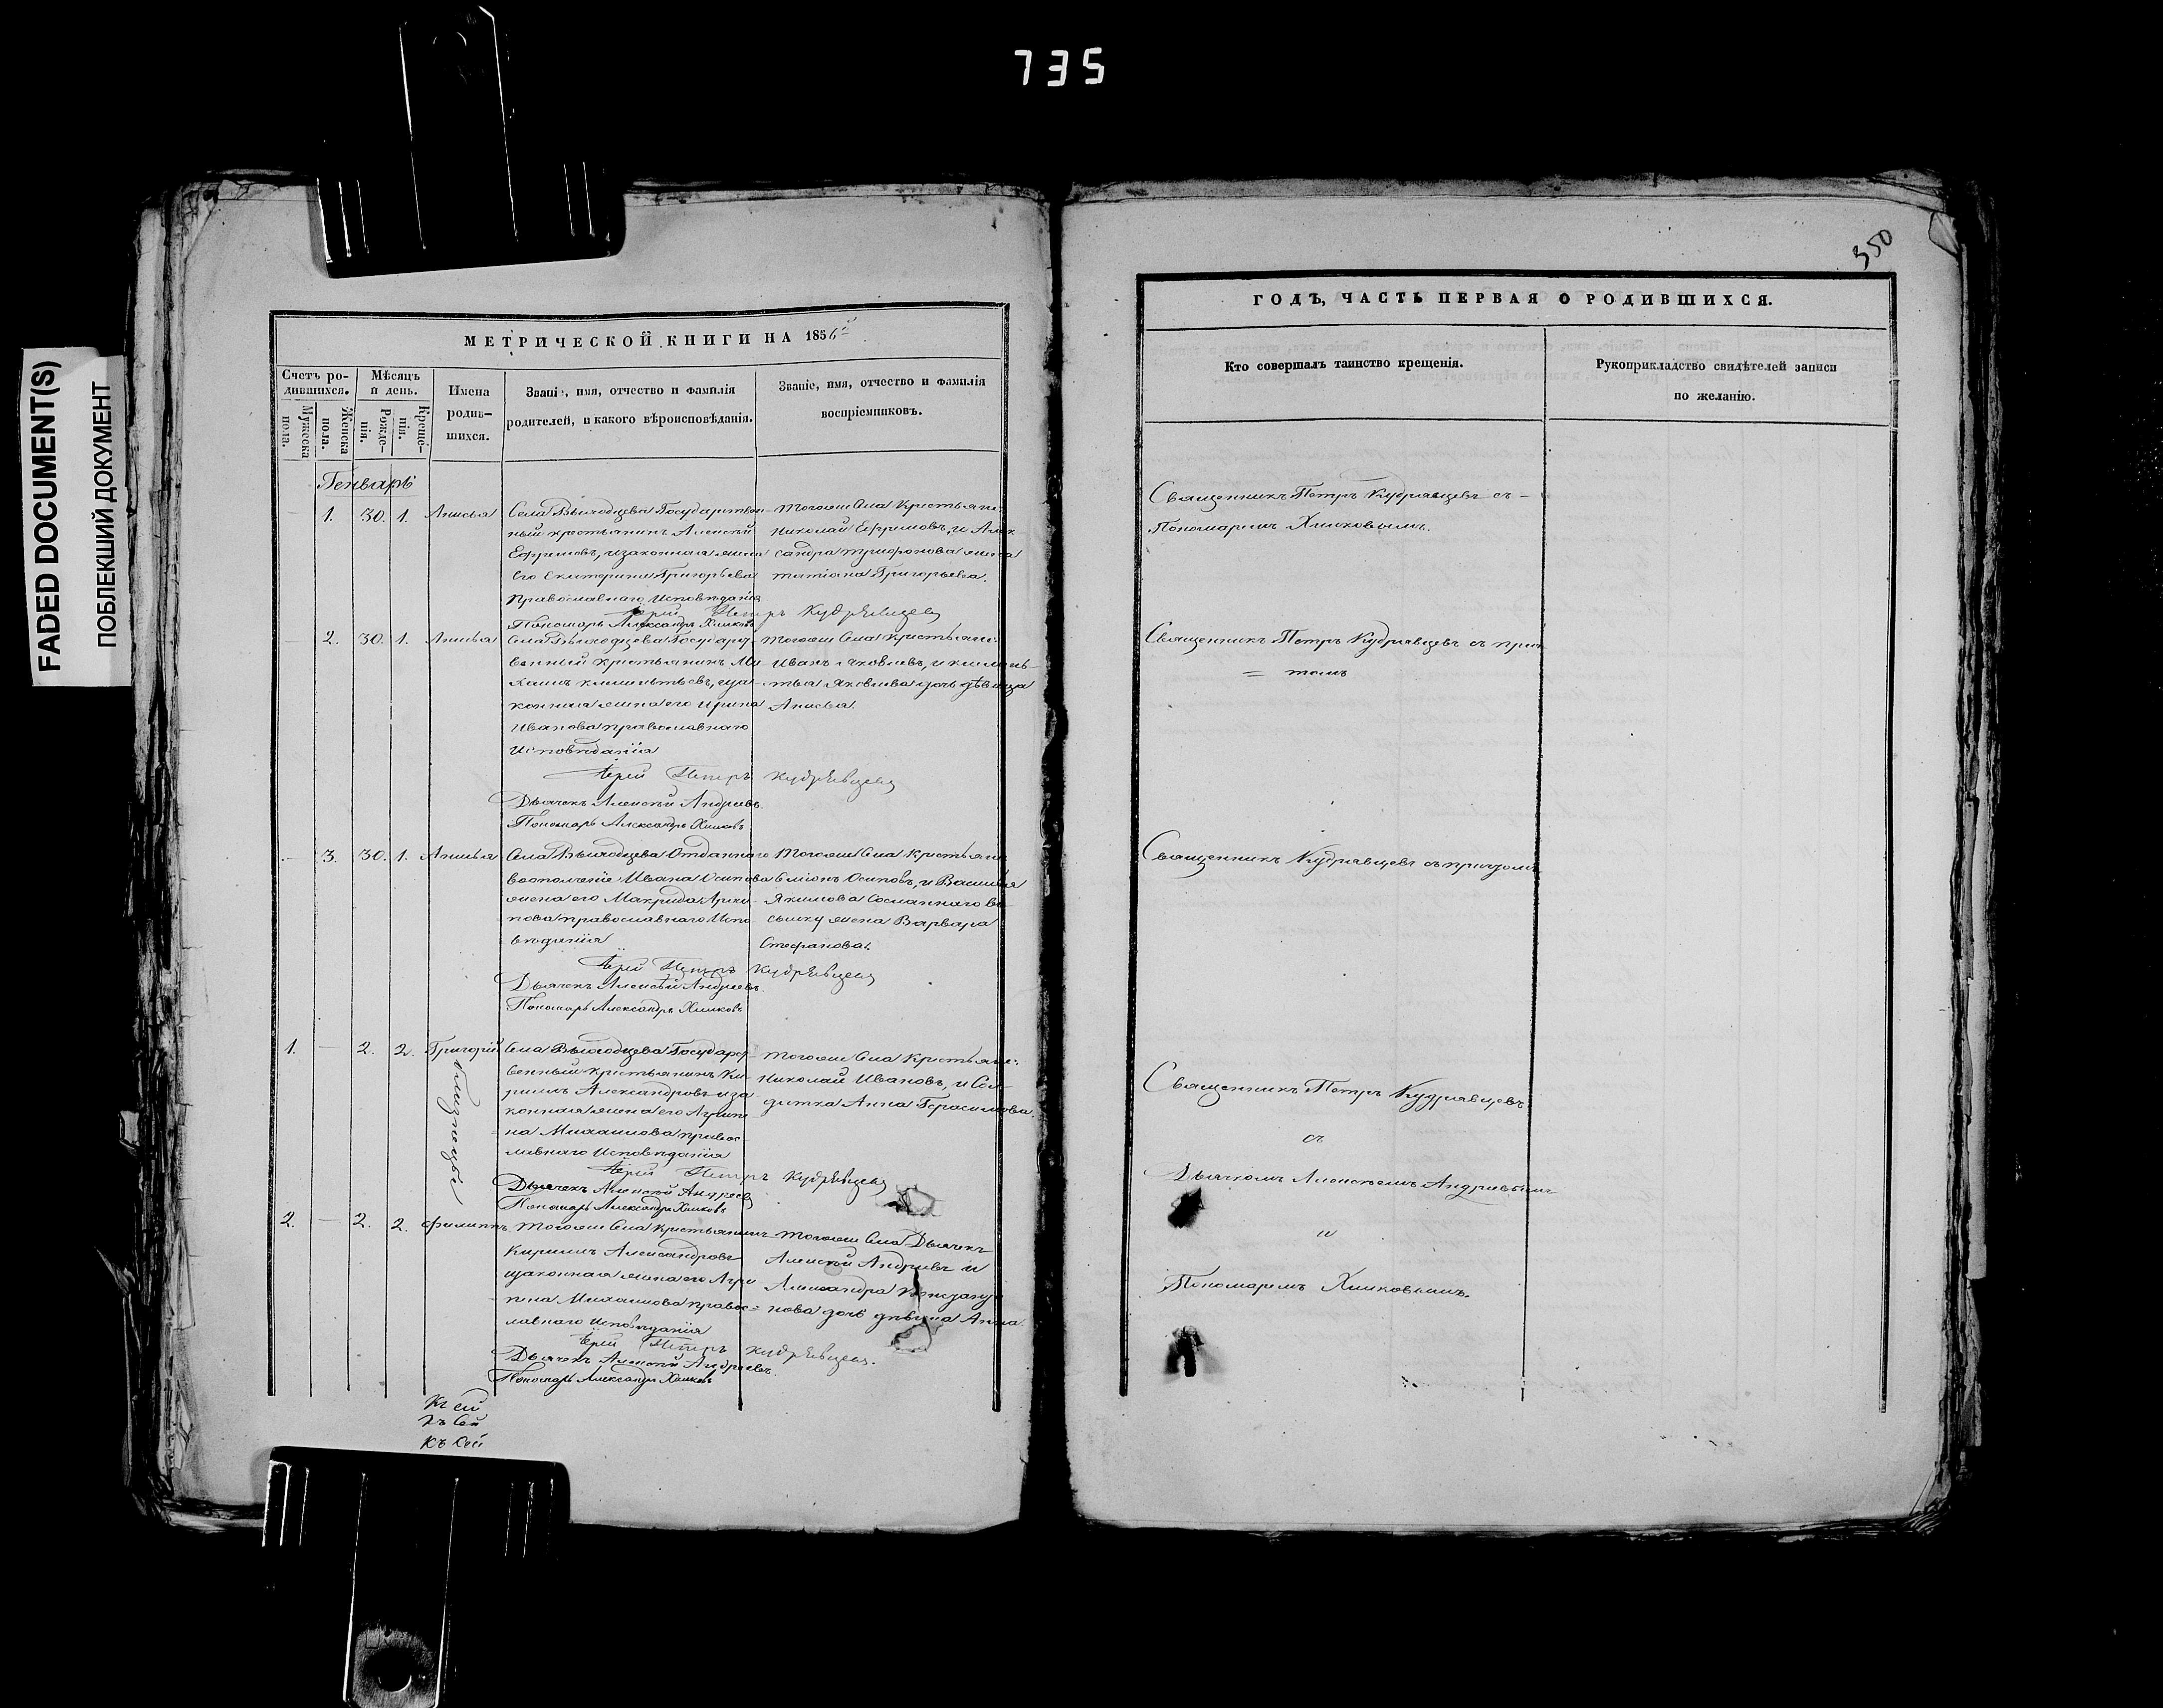 735
FADED DOCUMENT(S)
ПОБЛЕКШИЙ ДОКУМЕНТ
350
МЕТРИЧЕСКОЙ КНИГИ НА 1856й
Счетъ ро-
дившихся.
Мужеска
пола.
Женска
пола.
Мѣсяцъ
и день.
Рожде-
нія.
Креще-
нія.
Имена
родив-
шихся.
Званіе, имя, отчество и фамилія
родителей, и какого вѣроисповѣданія.
Званіе, имя, отчество и фамилія
воспріемниковъ.
Генварь
1. 30. 1. Анисья
Села Выходцева Государствен-
ный крестьянинъ Алексѣй
Ефримовъ, изаконная жена
его Екатерина Григорьева
православнаго Исповѣданія
Тогоже Села Крестьяни:
Николай Ефримовъ, и Алек
сандра Трифонова жена
татіана Григорьева.
Іерей Петръ Кудрявцевъ
Пономарь Александръ Хилковъ
2. 30. 1. Анисья
Села Выходцева Государст-
венный крестьянинъ Ми
хаилъ Клементьевъ, иза-
конная жена его Ирина
Иванова православнаго
Исповѣданія
Тогоже Села Крестьяни:
Иванъ Яковлевъ, и Клемень-
тья Яковлева дочь дѣвица
Анисья.
Іерей Петръ Кудрявцевъ
Дьячекъ Алексѣй Андреевъ.
Пономарь Александръ Хилковъ
3. 30. 1. Анисья
Села Выходцева Отданнаго
вополченіе Ивана Осипова
жена его Макрида Архи-
пова православнаго Испо
вѣданія
Тогоже Села Крестьяни:
Симіонъ Осиповъ, и Василья
Якимова Сосланнаго въ
сылку жена Варвара
Стефанова.
Іерей Петръ Кудрявцевъ
Дьячекъ Алексѣй Андреевъ.
Пономарь Александръ Хилковъ
1. 2. 2. Григорій
близнецы
Села Выходцева Государст-
венный крестьянинъ Ки-
рилъ Александровъ иза
конная жена его Агрипи
на Михаилова правос
лавнаго Исповѣданія
Тогоже Села Крестьяни:
Николай Ивановъ, и Сол-
датка Анна Герасимова.
Іерей Петръ Кудрявцевъ
Дьячекъ Алексѣй Андреевъ
Пономарь Александръ Хилковъ
2. 2. 2. Филиппъ
Тогоже Села Крестьянинъ
Кирилъ Александровъ
изаконная жена его Агри
пина Михаилова правос=
лавнаго Исповѣданія
Тогоже Села Дьячекъ
Алексѣй Андреевъ и
Александра
нова дочь дѣвица Анна.
Іерей Петръ Кудрявцевъ.
Дьячекъ Алексѣй Андреевъ.
Пономарь Александръ Хилковъ
Къ сей
Къ Сей
Къ Сей
ГОДЪ, ЧАСТЬ ПЕРВАЯ О РОДИВШИХСЯ.
Кто совершалъ таинство крещенія.
Рукоприкладство свидѣтелей записи
по желанію.
Священникъ Петръ Кудрявцевъ съ-
Пономаремъ Хилковымъ.
Священникъ Петръ Кудрявцевъ съ прич
= томъ
Священникъ Кудрявцевъ съ причтомъ
Священникъ Петръ Кудрявцевъ
съ
Дьячкомъ Алексѣемъ Андреевымъ
и
Пономаремъ Хилковымъ.